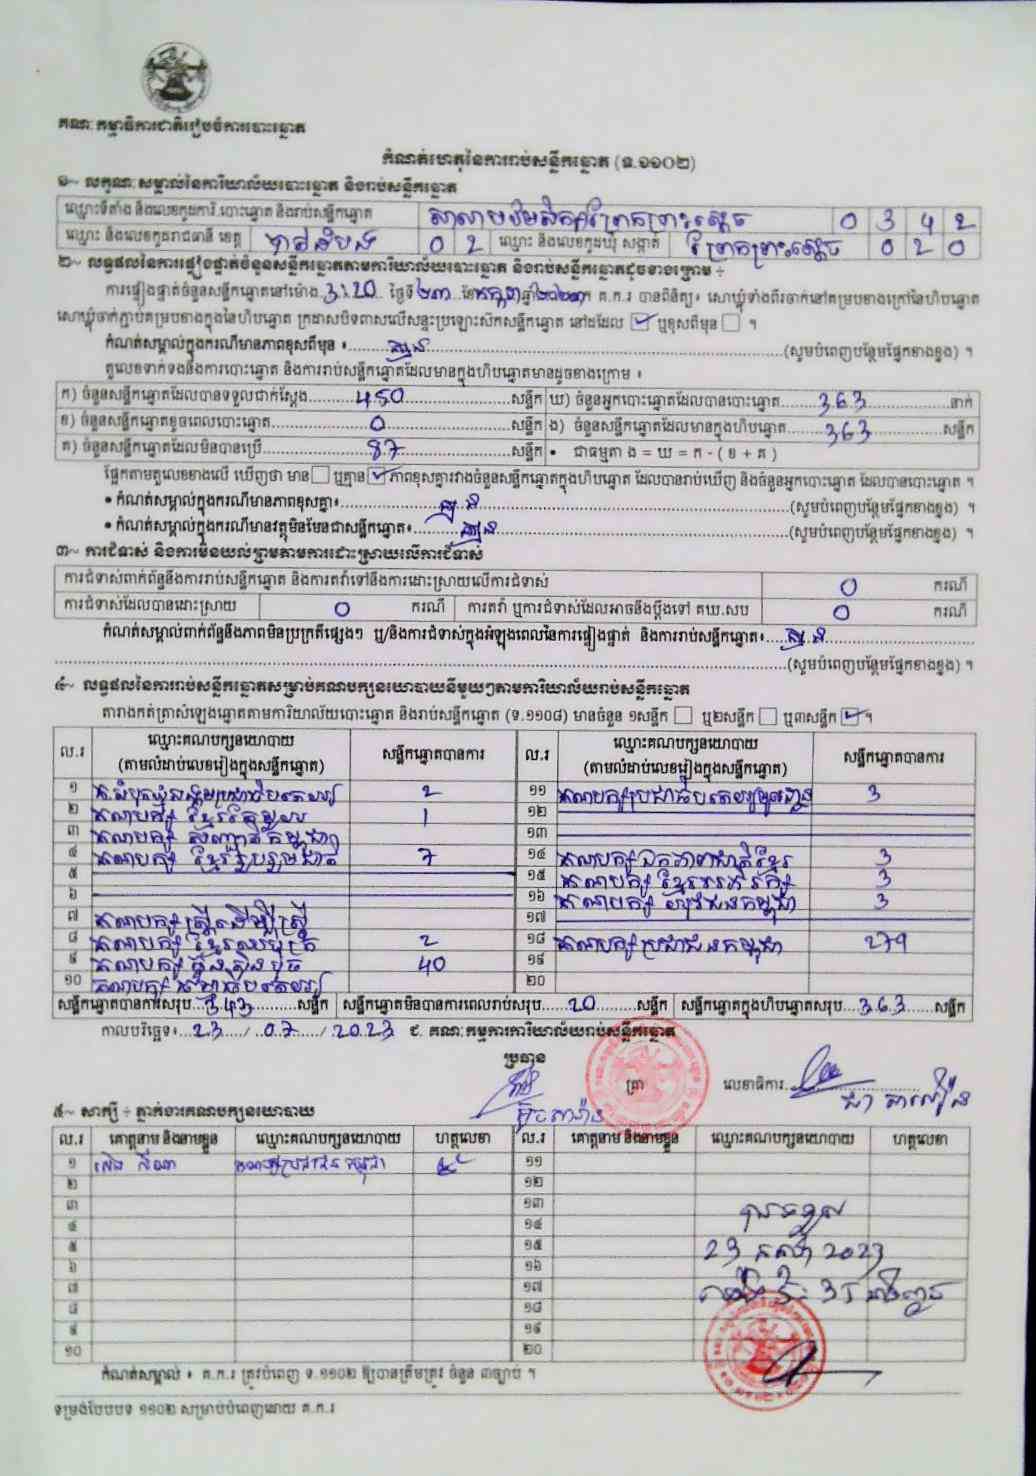 គណៈកម្មាធិការជាតិរៀបចំការបោះឆ្នោត
កំណត់ហេតុនៃការរាប់សន្លឹកឆ្នោត (ទ.១១០២)
១~ លក្ខណៈសម្គាល់នៃការិយាល័យបោះឆ្នោត និងរាប់សន្លឹកឆ្នោត
ឈ្មោះទីតាំង និងលេខកូដការិ.បោះឆ្នោត និងរាប់សន្លឹកឆ្នោត ព្រែកព្រះស្ដេច 0 3 4 2
ឈ្មោះ និងលេខកូដរាជធានី ខេត្ត បាត់ដំបង 0 2 ឈ្មោះ និងលេខកូដឃុំ សង្កាត់ ព្រែកព្រះស្ដេច 0 2 0
២~ លទ្ធផលនៃការផ្ទៀងផ្ទាត់ចំនួនសន្លឹកឆ្នោតតាមការិយាល័យបោះឆ្នោត និងរាប់សន្លឹកឆ្នោតដូចខាងក្រោម ÷
ការផ្ទៀងផ្ទាត់ចំនួនសន្លឹកឆ្នោតនៅម៉ោង 3:20 ថ្ងៃទី ២៣ ខែ កក្កដា ឆ្នាំ ២០២៣ គ.ក.រ បានពិនិត្យ៖ សោឃ្លុំទាំងពីរចាក់នៅគម្របខាងក្រៅនៃហិបឆ្នោត
សោឃ្លុំចាក់ភ្ជាប់គម្របខាងក្នុងនៃហិបឆ្នោត ក្រដាសបិទពាសលើសន្ទះប្រឡោះសឹកសន្លឹកឆ្នោត នៅដដែល ☑ ឬខុសពីមុន ☐ ។
កំណត់សម្គាល់ក្នុងករណីមានភាពខុសពីមុន ៖ គ្មាន (សូមបំពេញបន្ថែមផ្នែកខាងខ្នង) ។
តួលេខទាក់ទងនឹងការបោះឆ្នោត និងការរាប់សន្លឹកឆ្នោតដែលមានក្នុងហិបឆ្នោតមានដូចខាងក្រោម ៖
ក) ចំនួនសន្លឹកឆ្នោតដែលបានទទួលជាក់ស្ដែង 450 សន្លឹក ឃ) ចំនួនអ្នកបោះឆ្នោតដែលបានបោះឆ្នោត 363 នាក់
ខ) ចំនួនសន្លឹកឆ្នោតខូចពេលបោះឆ្នោត 0 សន្លឹក ង) ចំនួនសន្លឹកឆ្នោតដែលមានក្នុងហិបឆ្នោត 363 សន្លឹក
គ) ចំនួនសន្លឹកឆ្នោតដែលមិនបានប្រើ 87 សន្លឹក • ជាធម្មតា ង = ឃ = ក - ( ខ + គ )
ផ្អែកតាមតួលេខខាងលើ ឃើញថា មាន ☐ ឬគ្មាន ☑ ភាពខុសគ្នារវាងចំនួនសន្លឹកឆ្នោតក្នុងហិបឆ្នោត ដែលបានរាប់ឃើញ និងចំនួនអ្នកបោះឆ្នោត ដែលបានបោះឆ្នោត ។
• កំណត់សម្គាល់ក្នុងករណីមានភាពខុសគ្នា៖ គ្មាន (សូមបំពេញបន្ថែមផ្នែកខាងខ្នង) ។
• កំណត់សម្គាល់ក្នុងករណីមានវត្ថុមិនមែនជាសន្លឹកឆ្នោត៖ គ្មាន (សូមបំពេញបន្ថែមផ្នែកខាងខ្នង) ។
៣~ ការជំទាស់ និងការមិនយល់ព្រមតាមការដោះស្រាយលើការជំទាស់
ការជំទាស់ពាក់ព័ន្ធនឹងការរាប់សន្លឹកឆ្នោត និងការតវ៉ាទៅនឹងការដោះស្រាយលើការជំទាស់ 0 ករណី
ការជំទាស់ដែលបានដោះស្រាយ 0 ករណី ការតវ៉ា ឬការជំទាស់ដែលអាចនឹងប្ដឹងទៅ គឃ.សប 0 ករណី
កំណត់សម្គាល់ពាក់ព័ន្ធនឹងភាពមិនប្រក្រតីផ្សេងៗ ឬ/និងការជំទាស់ក្នុងអំឡុងពេលនៃការផ្ទៀងផ្ទាត់ និងការរាប់សន្លឹកឆ្នោត៖ គ្មាន
(សូមបំពេញបន្ថែមផ្នែកខាងខ្នង) ។
៤~ លទ្ធផលនៃការរាប់សន្លឹកឆ្នោតសម្រាប់គណបក្សនយោបាយនីមួយៗតាមការិយាល័យរាប់សន្លឹកឆ្នោត
តារាងកត់ត្រាសំឡេងឆ្នោតតាមការិយាល័យបោះឆ្នោត និងរាប់សន្លឹកឆ្នោត (ទ.១១០៨) មានចំនួន ១សន្លឹក ☐ ឬ២សន្លឹក ☐ ឬ៣សន្លឹក ☑ ។
ល.រ ឈ្មោះគណបក្សនយោបាយ (តាមលំដាប់លេខរៀងក្នុងសន្លឹកឆ្នោត) សន្លឹកឆ្នោតបានការ ល.រ ឈ្មោះគណបក្សនយោបាយ (តាមលំដាប់លេខរៀងក្នុងសន្លឹកឆ្នោត) សន្លឹកឆ្នោតបានការ
១ គ.សំបុកឃ្មុំសង្គមប្រជាធិបតេយ្យ 2 ១១ 3
២ គណបក្ស ខ្មែរ 1 ១២
៣ គណបក្ស កម្ពុជា ១៣
៤ គណបក្ស ខ្មែររួបរួមជាតិ 7 ១៤ គណបក្ស ឯកភាពជាតិខ្មែរ 3
៥ ១៥ គណបក្ស ខ្មែរអភិរក្ស 3
៦ ១៦ គណបក្ស យុវជនកម្ពុជា 3
៧ គណបក្ស ស្ត្រីដើម្បីស្ត្រី ១៧
៨ គណបក្ស ខ្មែរឈប់ក្រ 2 ១៨ គណបក្ស ប្រជាជនកម្ពុជា 279
៩ គណបក្ស ហ្វ៊ុនស៊ិនប៉ិច 40 ១៩
១០ គណបក្ស ២០
សន្លឹកឆ្នោតបានការសរុប 343 សន្លឹក សន្លឹកឆ្នោតមិនបានការពេលរាប់សរុប 20 សន្លឹក សន្លឹកឆ្នោតក្នុងហិបឆ្នោតសរុប 363 សន្លឹក
កាលបរិច្ឆេទ៖ 23 / 07 / 2023 ជ. គណៈកម្មការការិយាល័យរាប់សន្លឹកឆ្នោត
ប្រធាន
ត្រា លេខាធិការ
៥~ សាក្សី ÷ ភ្នាក់ងារគណបក្សនយោបាយ
ល.រ គោត្តនាម និងនាមខ្លួន ឈ្មោះគណបក្សនយោបាយ ហត្ថលេខា ល.រ គោត្តនាម និងនាមខ្លួន ឈ្មោះគណបក្សនយោបាយ ហត្ថលេខា
១ គណបក្សប្រជាជនកម្ពុជា ១១
២ ១២
៣ ១៣
៤ ១៤ បានទទួល
៥ ១៥ 23 កក្កដា 2023
៦ ១៦
៧ ១៧
៨ ១៨
៩ ១៩
១០ ២០
កំណត់សម្គាល់ ៖ គ.ក.រ ត្រូវបំពេញ ទ.១១០២ ឱ្យបានត្រឹមត្រូវ ចំនួន ៣ច្បាប់ ។
ទម្រង់បែបបទ ១១០២ សម្រាប់បំពេញដោយ គ.ក.រ